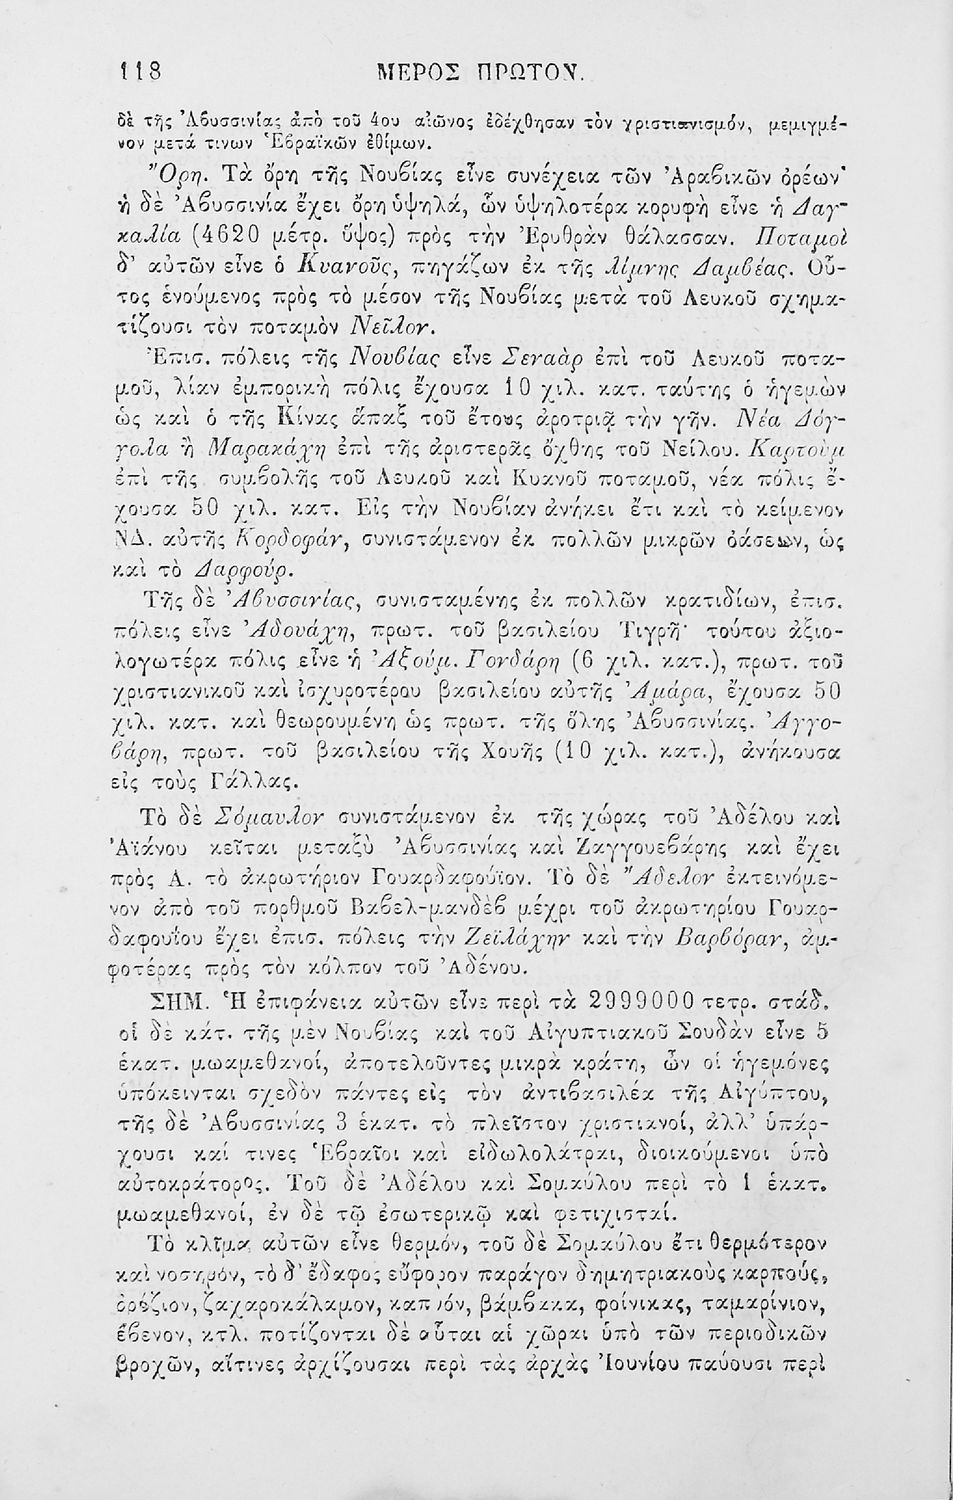 118 ΜΕΡΟΣ ΠΡΩΤΟΝ.
δὲ τῆς Ἀβυσσινίας ἀπὸ τοῦ 4ου αἰῶνος ἐδέχθησαν τὸν χριστιανισμόν, μεμιγμέ-
νον μετά τινων Ἑβραϊκῶν ἐθίμων.
Ὄρη. Τὰ ὄρη τῆς Νουβίας εἶνε συνέχεια τῶν Ἀραβικῶν ὀρέων·
ἡ δὲ Ἀβυσσινία ἔχει ὄρη ὑψηλά, ὧν ὑψηλοτέρα κορυφὴ εἶνε ἡ Δαγ-
καλία (4620 μέτρ. ὕψος) πρὸς τὴν Ἐρυθρὰν θάλασσαν. Ποταμοὶ
δ' αὐτῶν εἶνε ὁ Κυανοῦς, πηγάζων ἐκ τῆς λίμνης Δαμβέας. Οὗ-
τος ἑνούμενος πρὸς τὸ μέσον τῆς Νουβίας μετὰ τοῦ Λευκοῦ σχημα-
τίζουσι τὸν ποταμὸν Νεῖλον.
Ἐπισ. πόλεις τῆς Νουβίας εἶνε Σεναὰρ ἐπὶ τοῦ Λευκοῦ ποτα-
μοῦ, λίαν ἐμπορικὴ πόλις ἔχουσα 10 χιλ. κατ. ταύτης ὁ ἡγεμὼν
ὡς καὶ ὁ τῆς Κίνας ἅπαξ τοῦ ἔτους ἀροτριᾷ τὴν γῆν. Νέα Δόγ-
γολα ἢ Μαρακάχη ἐπὶ τῆς ἀριστερᾶς ὄχθης τοῦ Νείλου. Καρτοὺμ
ἐπὶ τῆς συμβολῆς τοῦ Λευκοῦ καὶ Κυανοῦ ποταμοῦ, νέα πόλις ἔ-
χουσα 50 χιλ. κατ. Εἰς τὴν Νουβίαν ἀνήκει ἔτι καὶ τὸ κείμενον
ΝΔ. αὐτῆς Κορδοφάν, συνιστάμενον ἐκ πολλῶν μικρῶν ὀάσεων, ὡς
καὶ τὸ Δαρφούρ.
Τῆς δὲ Ἀβυσσινίας, συνισταμένης ἐκ πολλῶν κρατιδίων, ἐπισ.
πόλεις εἶνε Ἀδουάχη, πρωτ. τοῦ βασιλείου Τιγρῆ· τούτου ἀξιο-
λογωτέρα πόλις εἶνε ἡ Ἀξούμ. Γονδάρη (6 χιλ. κατ.), πρωτ. τοῦ
χριστιανικοῦ καὶ ἰσχυροτέρου βασιλείου αὐτῆς Ἀμάρα, ἔχουσα 50
χιλ. κατ. καὶ θεωρουμένη ὡς πρωτ. τῆς ὅλης Ἀβυσσινίας. Ἀγγο-
βάρη, πρωτ. τοῦ βασιλείου τῆς Χουῆς (10 χιλ. κατ.), ἀνήκουσα
εἰς τοὺς Γάλλας.
Τὸ δὲ Σόμαυλον συνιστάμενον ἐκ τῆς χώρας τοῦ Ἀδέλου καὶ
Ἀϊάνου κεῖται μεταξὺ Ἀβυσσινίας καὶ Ζαγγουεβάρης καὶ ἔχει
πρὸς Α. τὸ ἀκρωτήριον Γουαρδαφούϊον. Τὸ δὲ Ἄδελον ἐκτεινόμε-
νον ἀπὸ τοῦ πορθμοῦ Βαβελ-μανδὲβ μέχρι τοῦ ἀκρωτηρίου Γουαρ-
δαφουΐου ἔχει ἐπισ. πόλεις τὴν Ζεϊλάχην καὶ τὴν Βαρβόραν, ἀμ-
φοτέρας πρὸς τὸν κόλπον τοῦ Ἀδένου.
ΣΗΜ. Ἡ ἐπιφάνεια αὐτῶν εἶνε περὶ τὰ 2999000 τετρ. στάδ.
οἱ δὲ κάτ. τῆς μὲν Νουβίας καὶ τοῦ Αἰγυπτιακοῦ Σουδὰν εἶνε 5
ἑκατ. μωαμεθανοί, ἀποτελοῦντες μικρὰ κράτη, ὧν οἱ ἡγεμόνες
ὑπόκεινται σχεδὸν πάντες εἰς τὸν ἀντιβασιλέα τῆς Αἰγύπτου,
τῆς δὲ Ἀβυσσινίας 3 ἑκατ. τὸ πλεῖστον χριστιανοί, ἀλλ' ὑπάρ-
χουσι καί τινες Ἑβραῖοι καὶ εἰδωλολάτραι, διοικούμενοι ὑπὸ
αὐτοκράτορος. Τοῦ δὲ Ἀδέλου καὶ Σομαύλου περὶ τὸ 1 ἑκατ.
μωαμεθανοί, ἐν δὲ τῷ ἐσωτερικῷ καὶ φετιχισταί.
Τὸ κλῖμα αὐτῶν εἶνε θερμόν, τοῦ δὲ Σομαύλου ἔτι θερμότερον
καὶ νοσηρόν, τὸ δ' ἔδαφος εὔφορον παράγον δημητριακοὺς καρπούς,
ὀρύζιον, ζαχαροκάλαμον, καπνόν, βάμβακα, φοίνικας, ταμαρίνιον,
ἔβενον, κτλ. ποτίζονται δὲ αὗται αἱ χῶραι ὑπὸ τῶν περιοδικῶν
βροχῶν, αἵτινες ἀρχίζουσαι περὶ τὰς ἀρχὰς Ἰουνίου παύουσι περὶ